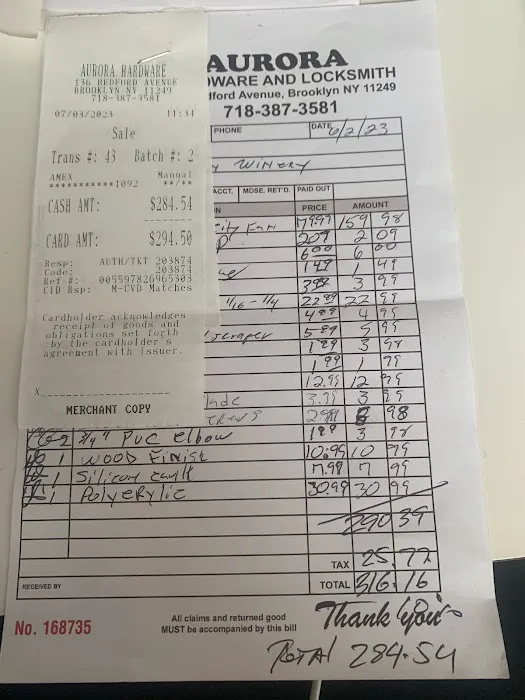 AURORA HARDWARE
136 BEDFORD AVENUE
BROOKLYN NY 11249
718-387-3581
07/03/2023 11:31
Sale
Trans #: 43 Batch #: 2
AMEX Manual
***********1092 **/**
CASH AMT: $284.54
CARD AMT: $294.50
Resp: AUTH/TKT 203874
Code: 203874
Ref #: 005597826965303
CID Rsp: M-CVB Matches
Cardholder acknowledges
receipt of goods and
obligations set forth
by the cardholder's
agreement with issuer.
X
MERCHANT COPY
AURORA
DWARE AND LOCKSMITH
dford Avenue, Brooklyn NY 11249
718-387-3581
PHONE DATE
WINERY
ACCT. MDSE. RET'D. PAID OUT
PRICE AMOUNT
city Fan 79.99 159 98
2.09 2 09
6.00 6 00
1.49 1 49
3.99 3 99
1/16 - 1/4 22.99 22 99
4.99 4 99
scraper 5.99 5 99
1.99 3 98
1.99 1 99
12.99 12 99
lade 3.99 3 99
2.99 98
2 3/4" PVC elbow 1.99 3 98
1 WOOD FINISH 10.99 10 99
1 Silicon caulk 7.99 7 99
1 Polycrylic 30.99 30 99
290 39
TAX 25.77
TOTAL 316.16
RECEIVED BY
No. 168735
All claims and returned good
MUST be accompanied by this bill
Thank You
Total 284.54